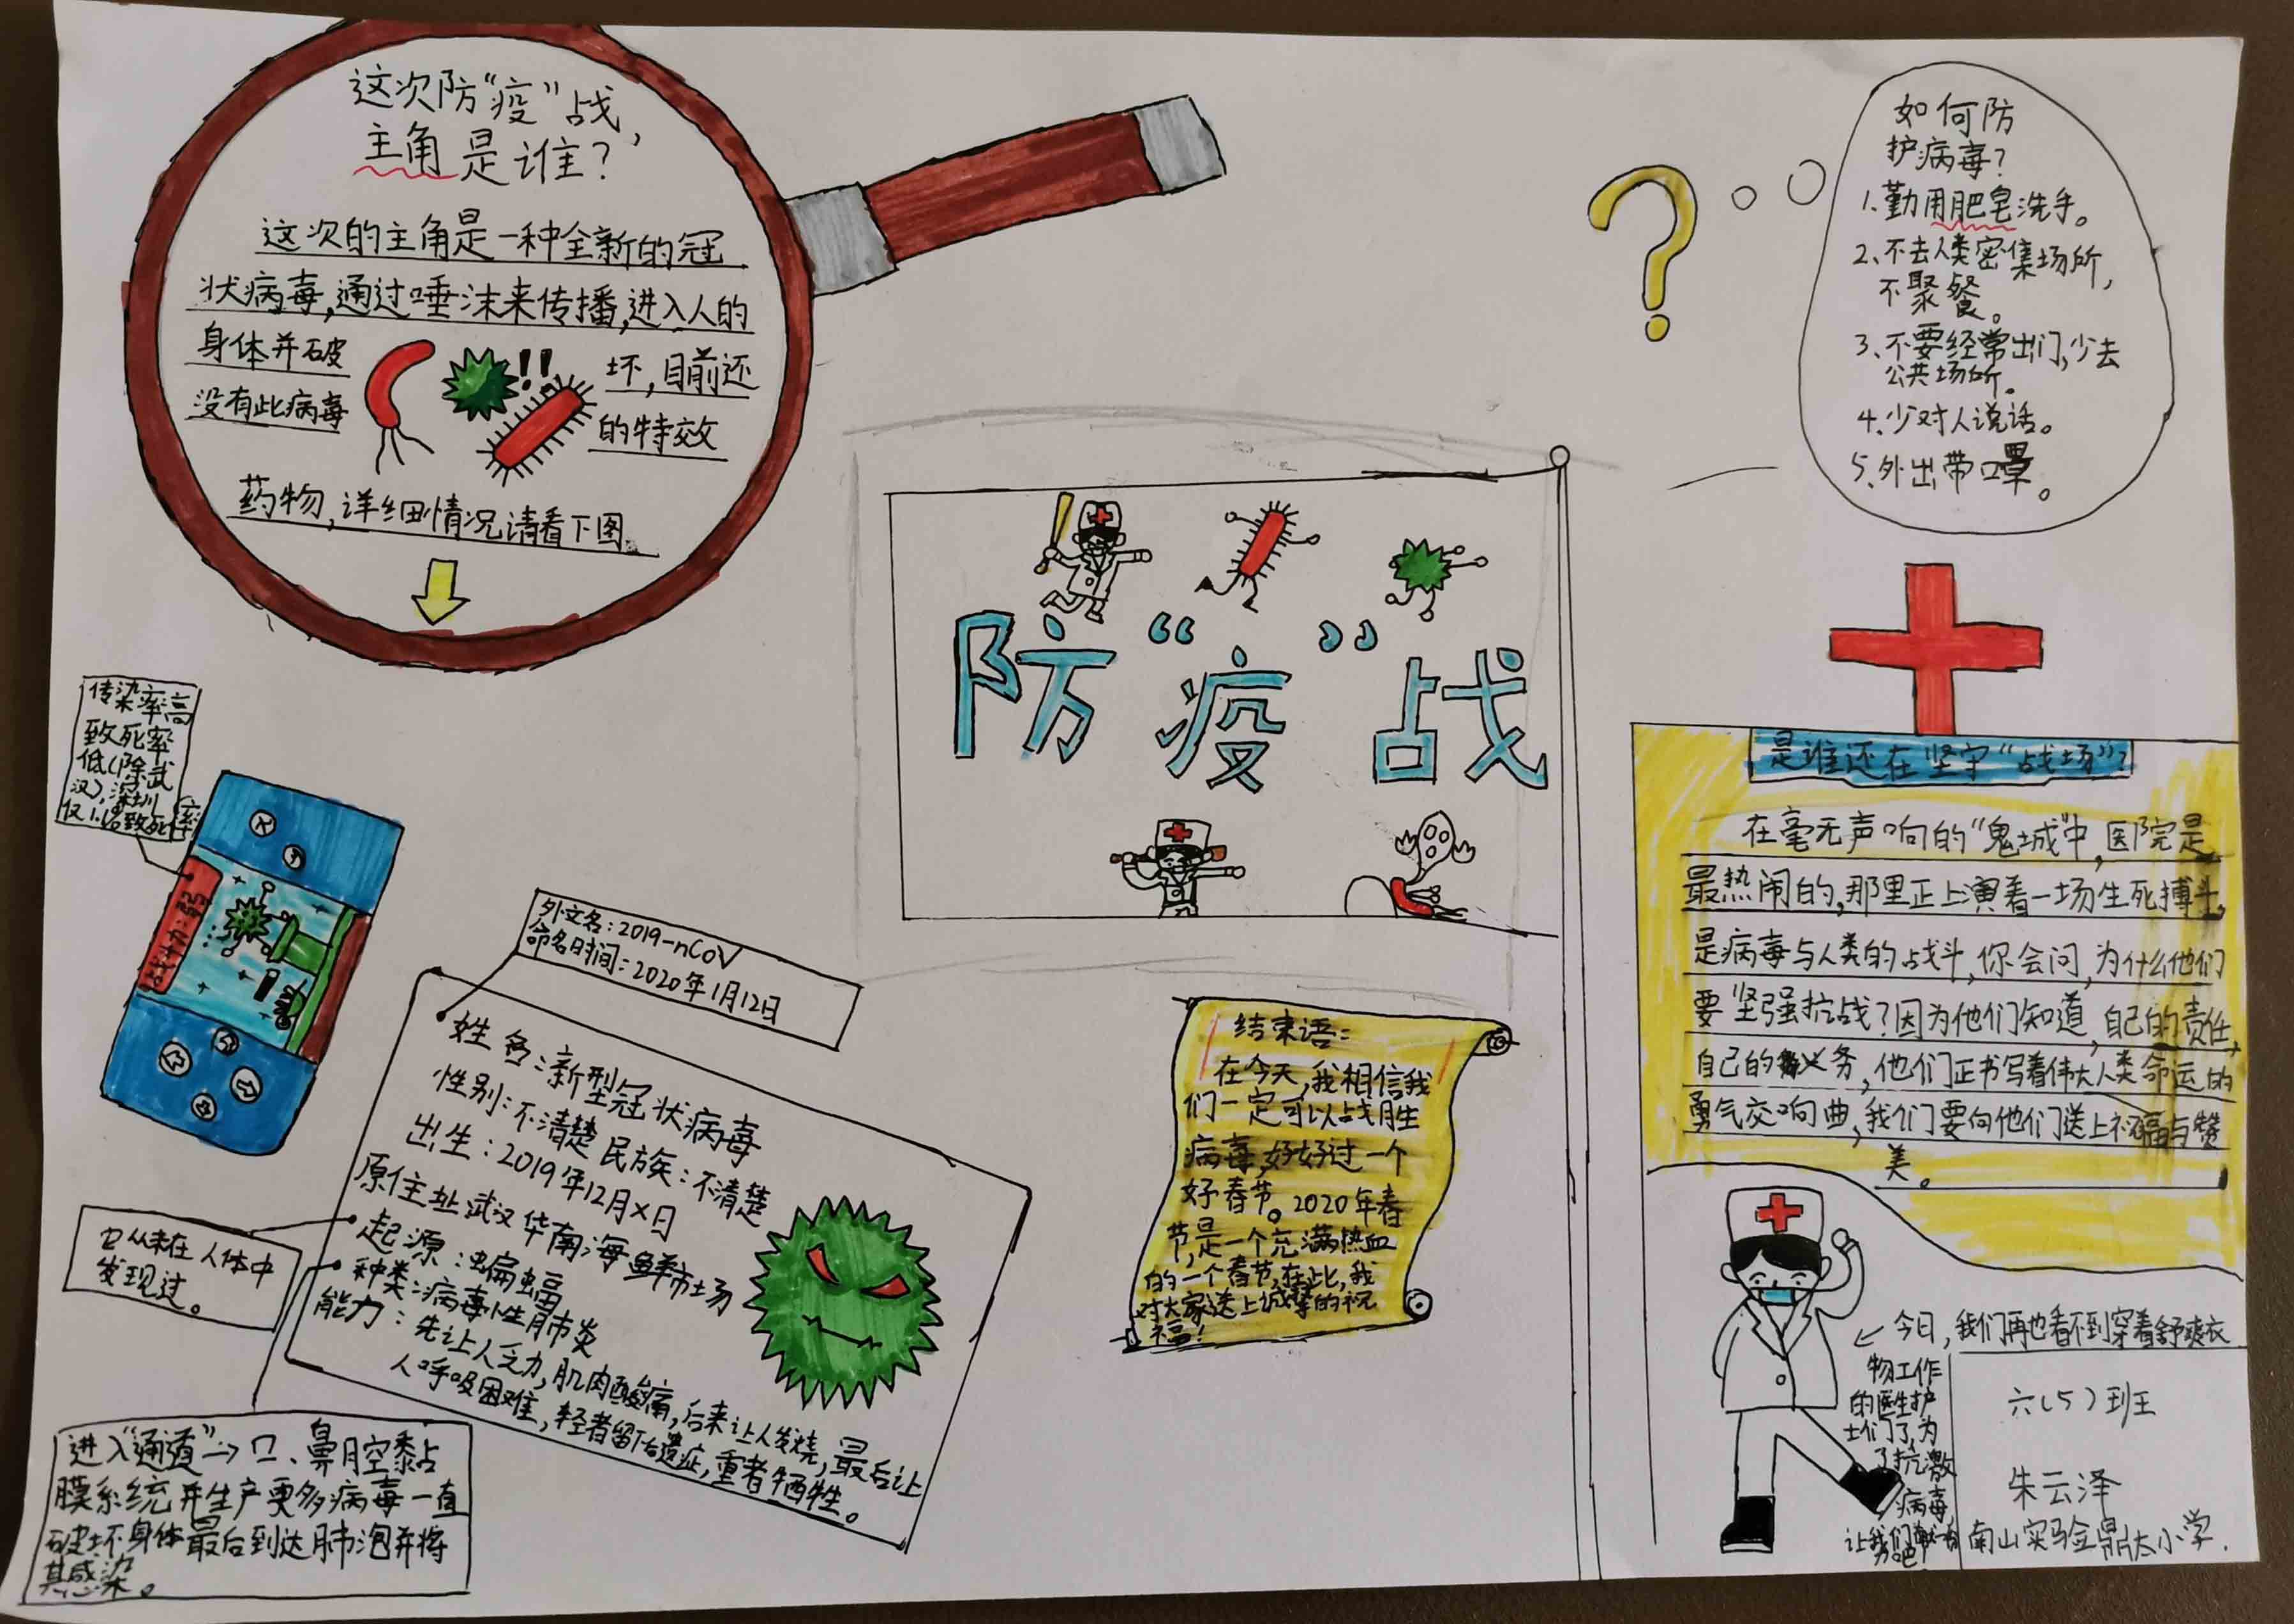 这次防“疫”战，
主角是谁？
这次的主角是一种全新的冠
状病毒，通过唾沫来传播，进入人的
身体并破坏，目前还
没有此病毒的特效
药物，详细情况请看下图。
如何防
护病毒？
1、勤用肥皂洗手。
2、不去人类密集场所，
不聚餐。
3、不要经常出门，少去
公共场所。
4、少对人说话。
5、外出带口罩。
防“疫”战
传染率高
致死率
低（除武
汉），深圳
仅1.1%致死率
战斗力：弱
外文名：2019-nCoV
命名时间：2020年1月12日
姓名：新型冠状病毒
性别：不清楚 民族：不清楚
出生：2019年12月X日
原住址 武汉华南海鲜市场
起源：蝙蝠
种类：病毒性肺炎
能力：先让人乏力，肌肉酸痛，后来让人发烧，最后让
人呼吸困难，轻者留下后遗症，重者牺牲。
它从未在人体中
发现过。
进入“通道”→口、鼻腔黏占
膜系统并生产更多病毒一直
破坏身体最后到达肺泡并将
其感染。
结束语：
在今天，我相信我
们一定可以战胜
病毒，好好过一个
好春节。2020年春
节，是一个充满热血
的一个春节，在此，我
对大家送上诚挚的祝
福！
是谁还在坚守“战场”？
在毫无声响的“鬼城”中，医院是
最热闹的，那里正上演着一场生死搏斗。
是病毒与人类的战斗，你会问，为什么他们
要坚强抗战？因为他们知道，自己的责任，
自己的义务，他们正书写着伟大人类命运的
勇气交响曲，我们要向他们送上祝福与赞
美。
今日，我们再也看不到穿着舒爽衣
物工作
的医生护
士们了，为
了抗激
病毒
让我们
六（5）班
朱云泽
南山实验鼎太小学.